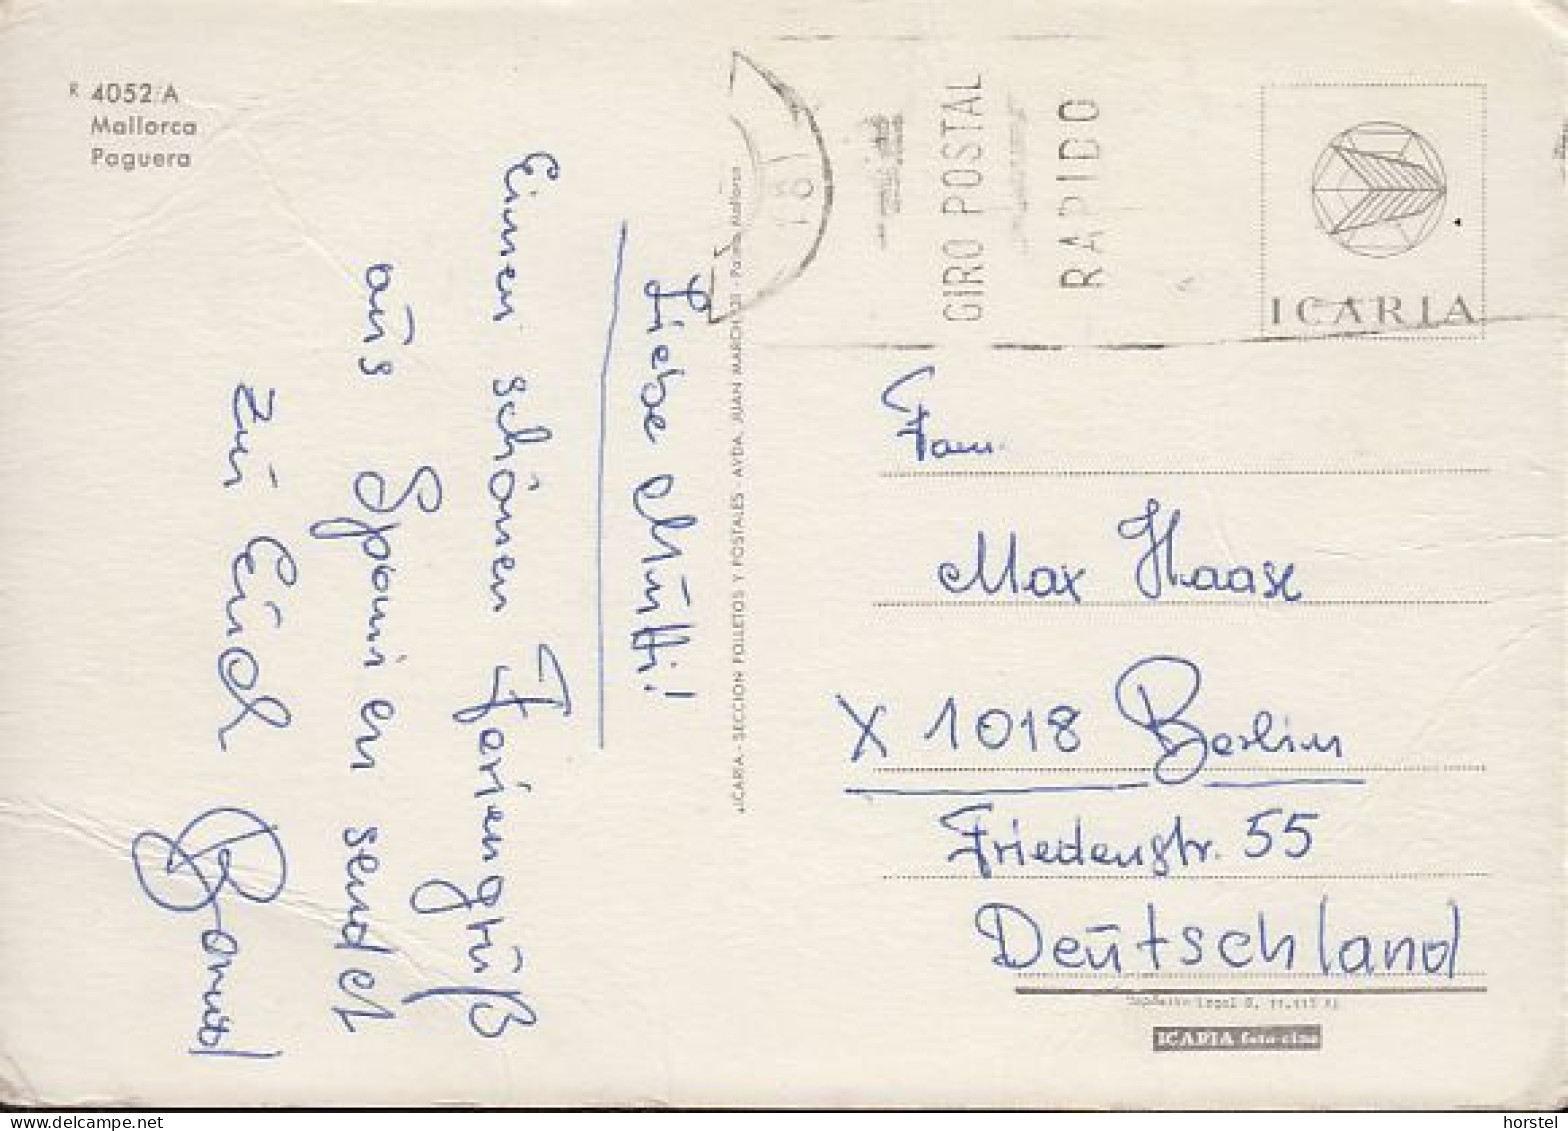 R 4052/A
Mallorca
Paguera
Liebe Mutti!
Einen schönen Feriengruß
aus Spanien sendet
zu Euch
ICARIA - SECCION FOLLETOS Y POSTALES - AVDA. JUAN MARCH - Palma Mallorca
18
GIRO POSTAL
RAPIDO
ICARIA
Fam.
Max Haase
X 1018 Berlin
Friedenstr. 55
Deutschland
Legal
ICARIA foto-cine
horstel